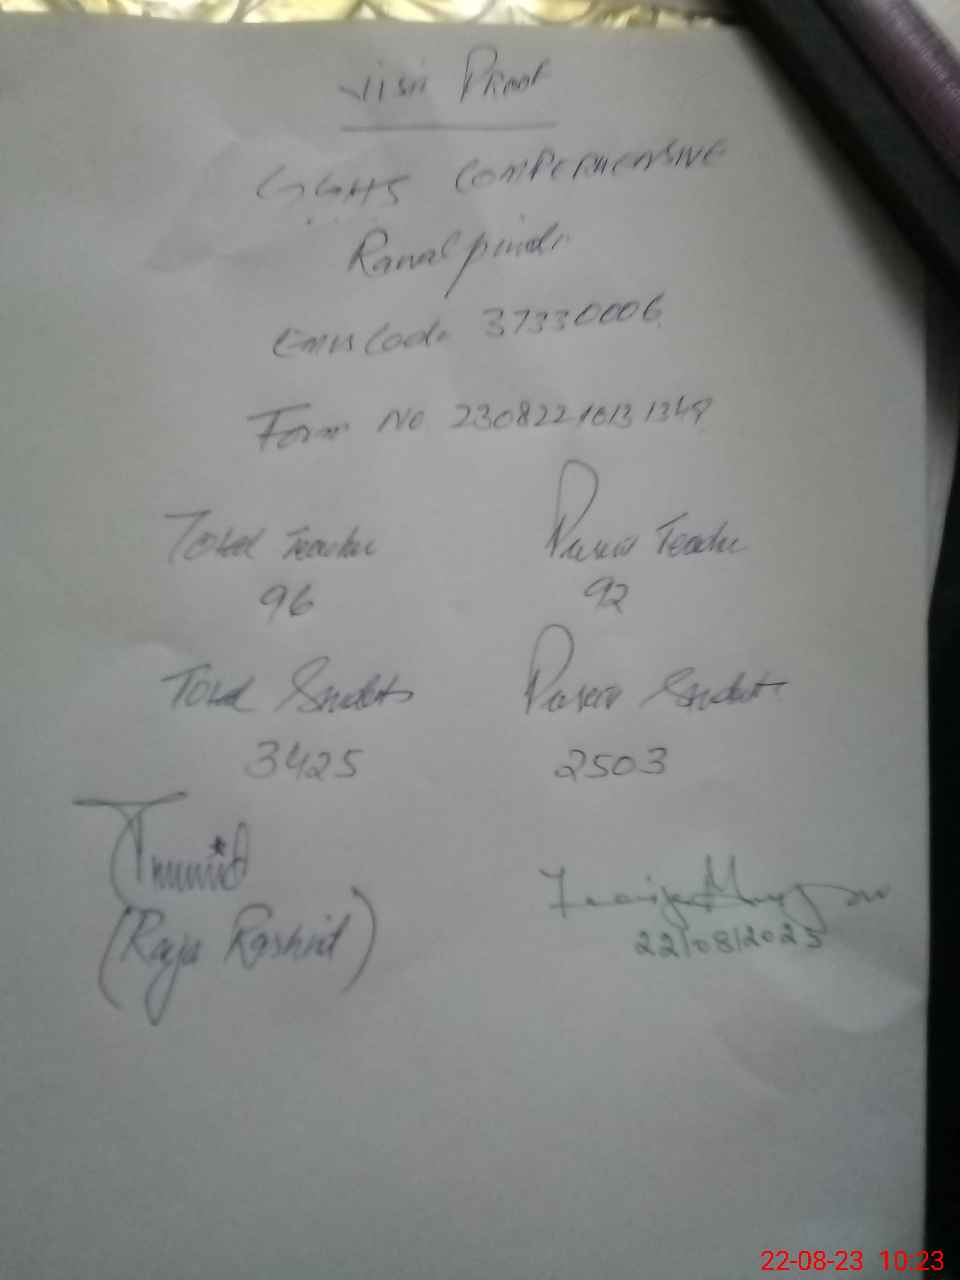 Visit Proof
GGHS COMPREHENSIVE
Rawalpindi
Emis Code 37330006
Form No 23082210131349
Total Teacher Present Teacher
96 92
Total Students Present Student
3425 2503
(Raja Rashid)
22/08/2023
22-08-23 10:23